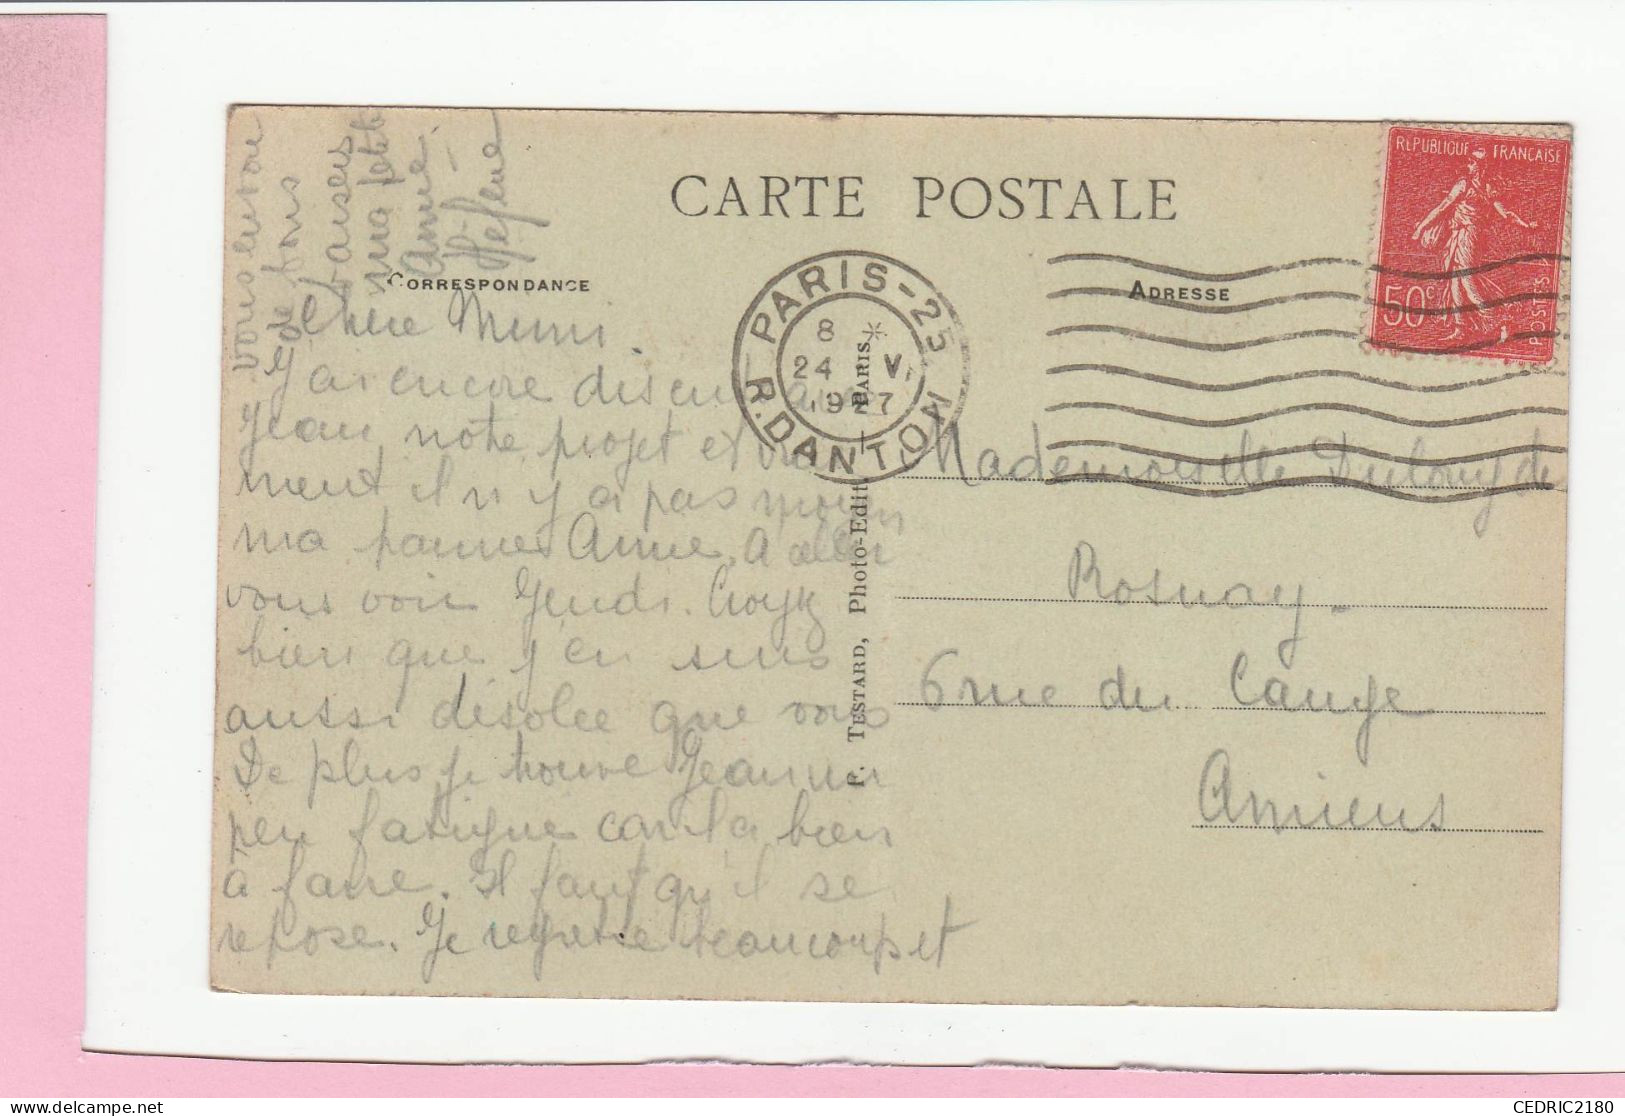 CARTE POSTALE
CORRESPONDANCE
ADRESSE
REPUBLIQUE FRANÇAISE
50c
POSTES
PARIS-25
R. DANTON
8 *
24 VI
1927
F. TESTARD, Photo-Edit. PARIS.
Chère Mimi.
J'ai encore discuté avec
Jean notre projet et vrai
ment il n'y a pas moyen
ma pauvre Anne, d'aller
vous voir Jeudi. Croyez
bien que j'en suis
aussi désolée que vous
De plus je trouve Jean un
peu fatigué car il a bien
à faire. Il faut qu'il se
repose. Je regrette beaucoup et
vous envoie
de bons
baisers
ma petite
Anne.
Hélène
Mademoiselle de
Rosnay-
6 rue du Cange
Amiens
CEDRIC2180